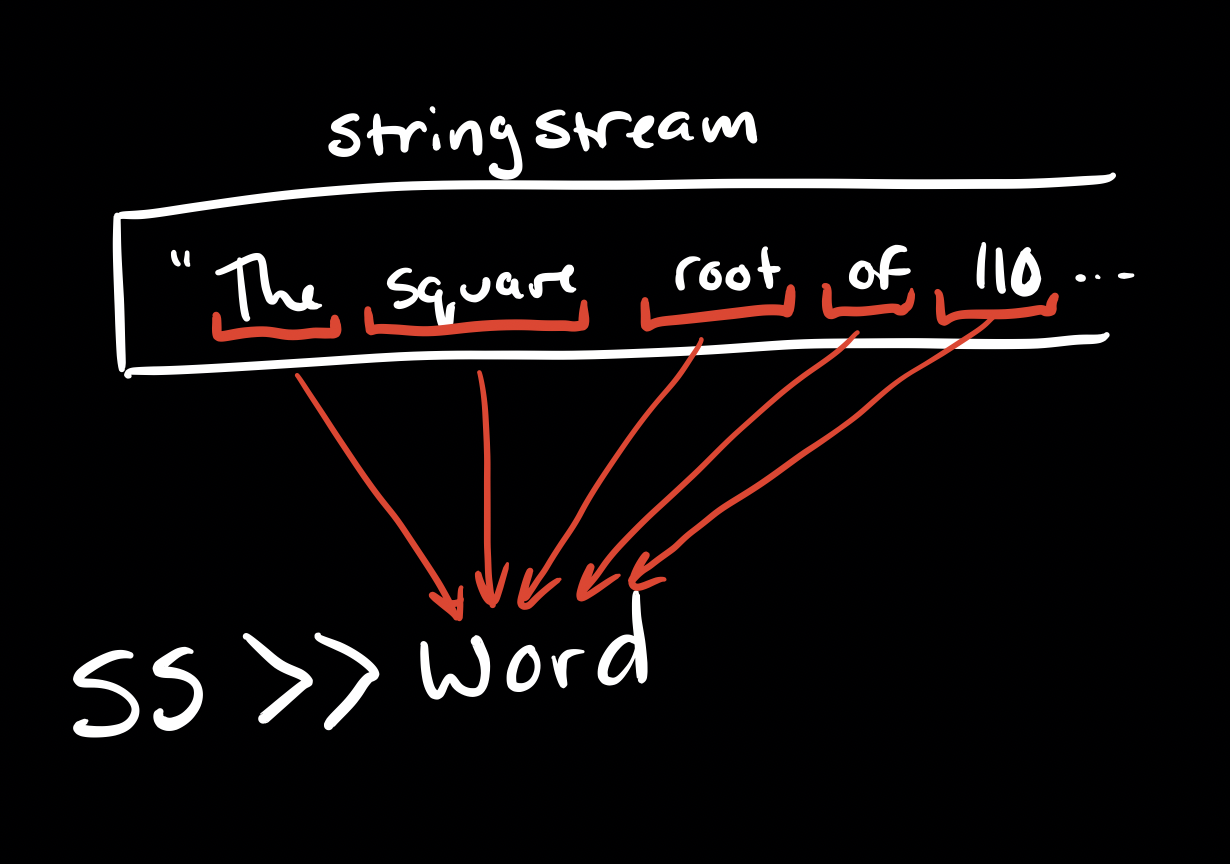 stringstream
"The square root of 110 ...
SS >> Word